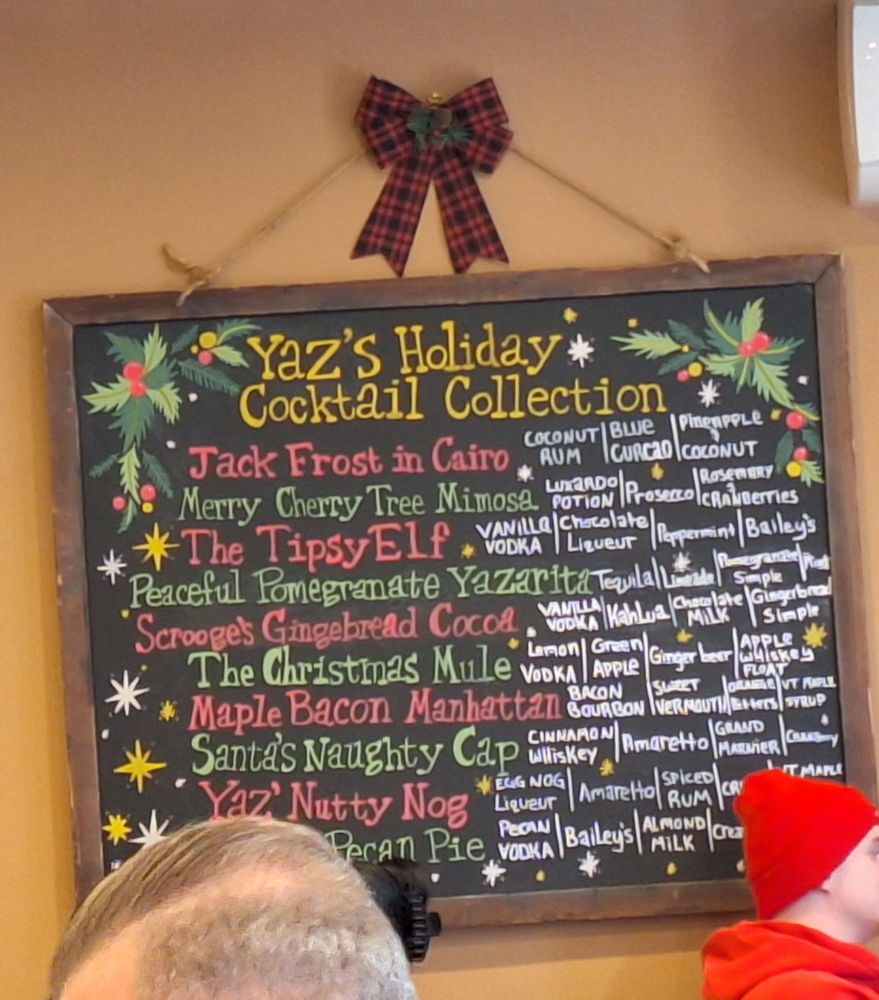 Yaz's Holiday
Cocktail Collection
Jack Frost in Cairo COCONUT RUM | BLUE CURCAO | PineAPPLE & COCONUT
Merry Cherry Tree Mimosa LUXARDO POTION | Prosecco | Rosemary & CRANBERRIES
The Tipsy Elf VANILLA VODKA | Chocolate Liqueur | Peppermint | Bailey's
Peaceful Pomegranate Yazarita Tequila | Limeade | Pomegranate Simple
Scrooge's Gingebread Cocoa VANILLA VODKA | KahLua | Chocolate MiLK | Gingerbread Simple
The Christmas Mule Lemon VODKA | Green APPLE | Ginger beer | APPLE Whiskey FLOAT
Maple Bacon Manhattan BACON BOURBON | SWEET VERMOUTH | ORANGE Bitters | VT MAPLE SYRUP
Santa's Naughty Cap CINNAMON Whiskey | Amaretto | GRAND MARNIER
Yaz' Nutty Nog EGG NOG Liqueur | Amaretto | SPICED RUM | VT MAPLE
Pecan Pie PECAN VODKA | Bailey's | ALMOND MiLK